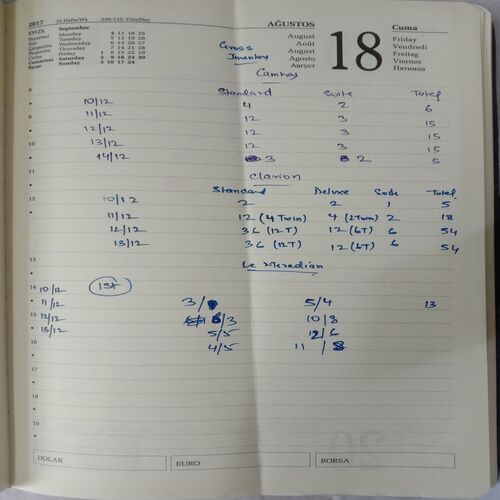 2017 33 Hafta/Wk 230-135. Gün/Day
AĞUSTOS
Cuma
EYLÜL September
Pazartesi Monday 4 11 18 25
Salı Tuesday 5 12 19 26
Çarşamba Wednesday 6 13 20 27
Perşembe Thursday 7 14 21 28
Cuma Friday 1 8 15 22 29
Cumartesi Saturday 2 9 16 23 30
Pazar Sunday 3 10 17 24
August
Août
Agosto
Август
18
Friday
Vendredi
Freitag
Viernes
Пятница
Gross
Inventory
Standard Suite Total
10/12 4 2 6
11/12 12 3 15
12/12 12 3 15
13/12 12 3 15
14/12 3 2 5
Clarion
Standard Deluxe Total
10/12 2 2 1 5
11/12 12 (4 Twin) 4 (2 Twin) 2 18
12/12 36 (12T) 12 (6T) 6 54
13/12 36 (12T) 12 (6T) 6 54
Le Meredian
10/12 1st
11/12 3/ 5/4 13
12/12 /3 10/8
13/12 5/5 /6
4/5 11/8
DOLAR EURO BORSA